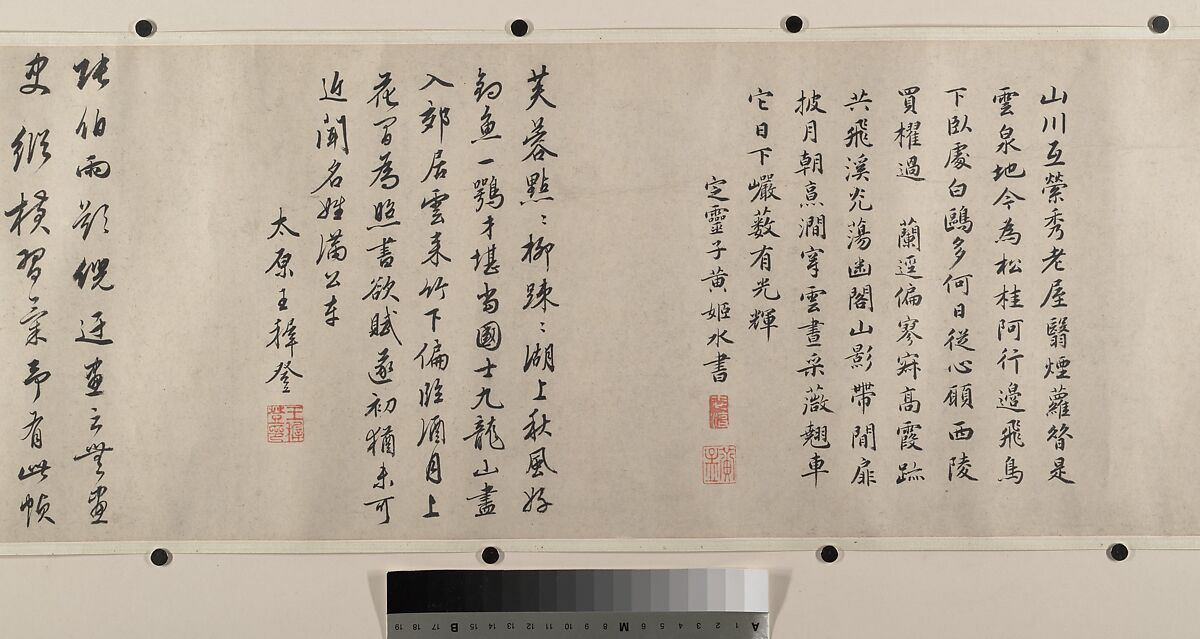 山川互縈秀老屋翳煙蘿昝是
雲泉地今為松桂阿行邊飛鳥
下臥處白鷗多何日從心願西陵
買櫂過 蘭逕偏寥寂高霞跡
共飛溪光蕩幽閣山影帶閒扉
披月朝熹澗穿雲晝采薇翹車
它日下巖薮有光輝
定靈子黄姬水書
芙蓉點〻柳踈〻湖上秋風好
釣魚一鶚才堪當國士九龍山盡
入郊居雲來竹下偏臨酒月上
花間為照書欲賦遂初猶未可
近聞名姓滿公車
太原王穉登
王穉登
張伯雨題倪迂畫云無畫
史縱橫習氣予有此帧
A 1 2 3 4 5 6 M 8 9 10 11 12 13 14 15 B 17 18 19